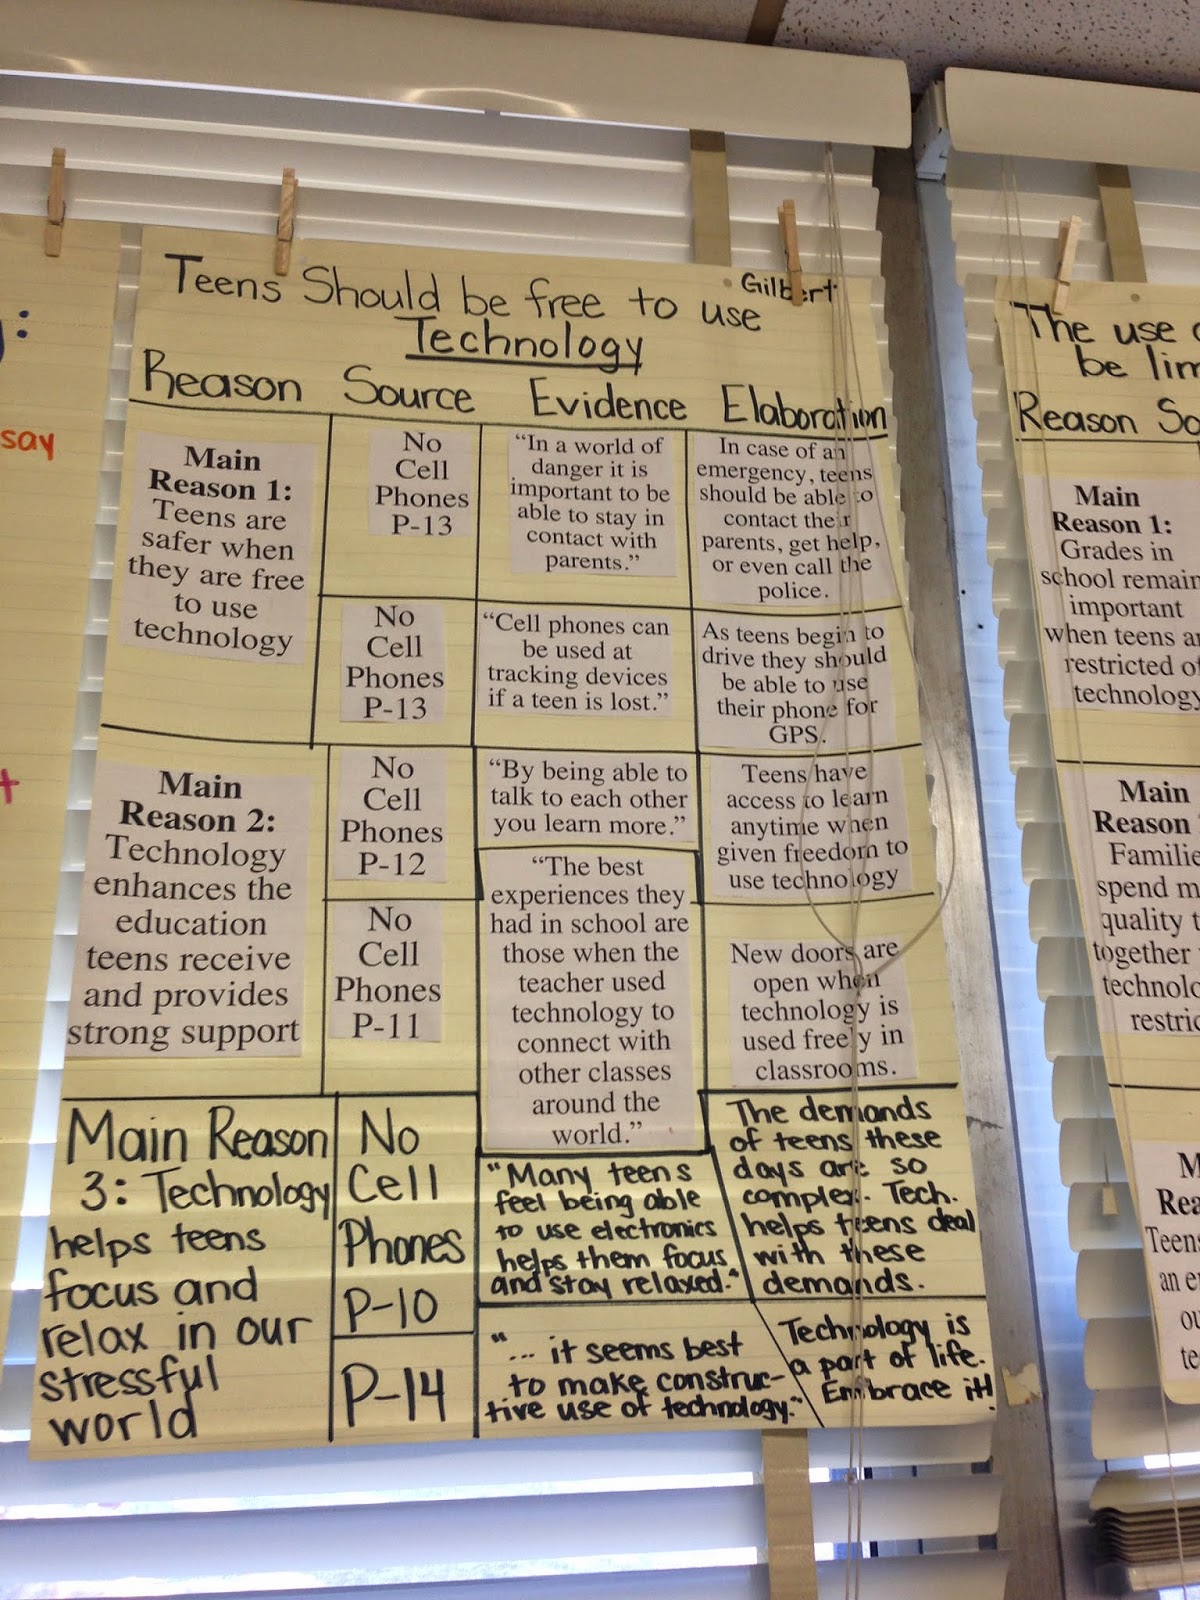 Teens Should be free to use
Gilbert
Technology
Reason Source Evidence Elaboration
Main
Reason 1:
Teens are
safer when
they are free
to use
technology
No
Cell
Phones
P-13
"In a world of
danger it is
important to be
able to stay in
contact with
parents."
In case of an
emergency, teens
should be able to
contact their
parents, get help,
or even call the
police.
No
Cell
Phones
P-13
"Cell phones can
be used at
tracking devices
if a teen is lost."
As teens begin to
drive they should
be able to use
their phone for
GPS.
Main
Reason 2:
Technology
enhances the
education
teens receive
and provides
strong support
No
Cell
Phones
P-12
"By being able to
talk to each other
you learn more."
Teens have
access to learn
anytime when
given freedom to
use technology
No
Cell
Phones
P-11
"The best
experiences they
had in school are
those when the
teacher used
technology to
connect with
other classes
around the
world."
New doors are
open when
technology is
used freely in
classrooms.
Main Reason
3: Technology
helps teens
focus and
relax in our
stressful
world
No
Cell
Phones
P-10
"Many teens
feel being able
to use electronics
helps them focus
and stay relaxed."
The demands
of teens these
days are so
complex. Tech.
helps teens deal
with these
demands.
P-14
"... it seems best
to make construc-
tive use of technology."
Technology is
a part of life.
Embrace it!
say
The use
be
Reason
Main
Reason 1:
Grades in
school remain
important
when teens
restricted
technology
Main
Reason
spend
quality
together
Teens
an